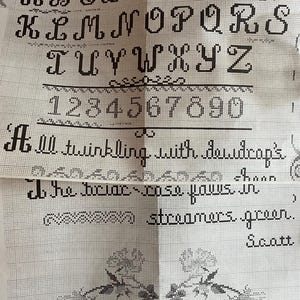 KLMNOPQRS
TUVWXYZ
1234567890
All twinkling with dewdrop's
sheen
The briar-rose falls in
streamers green.
Scott